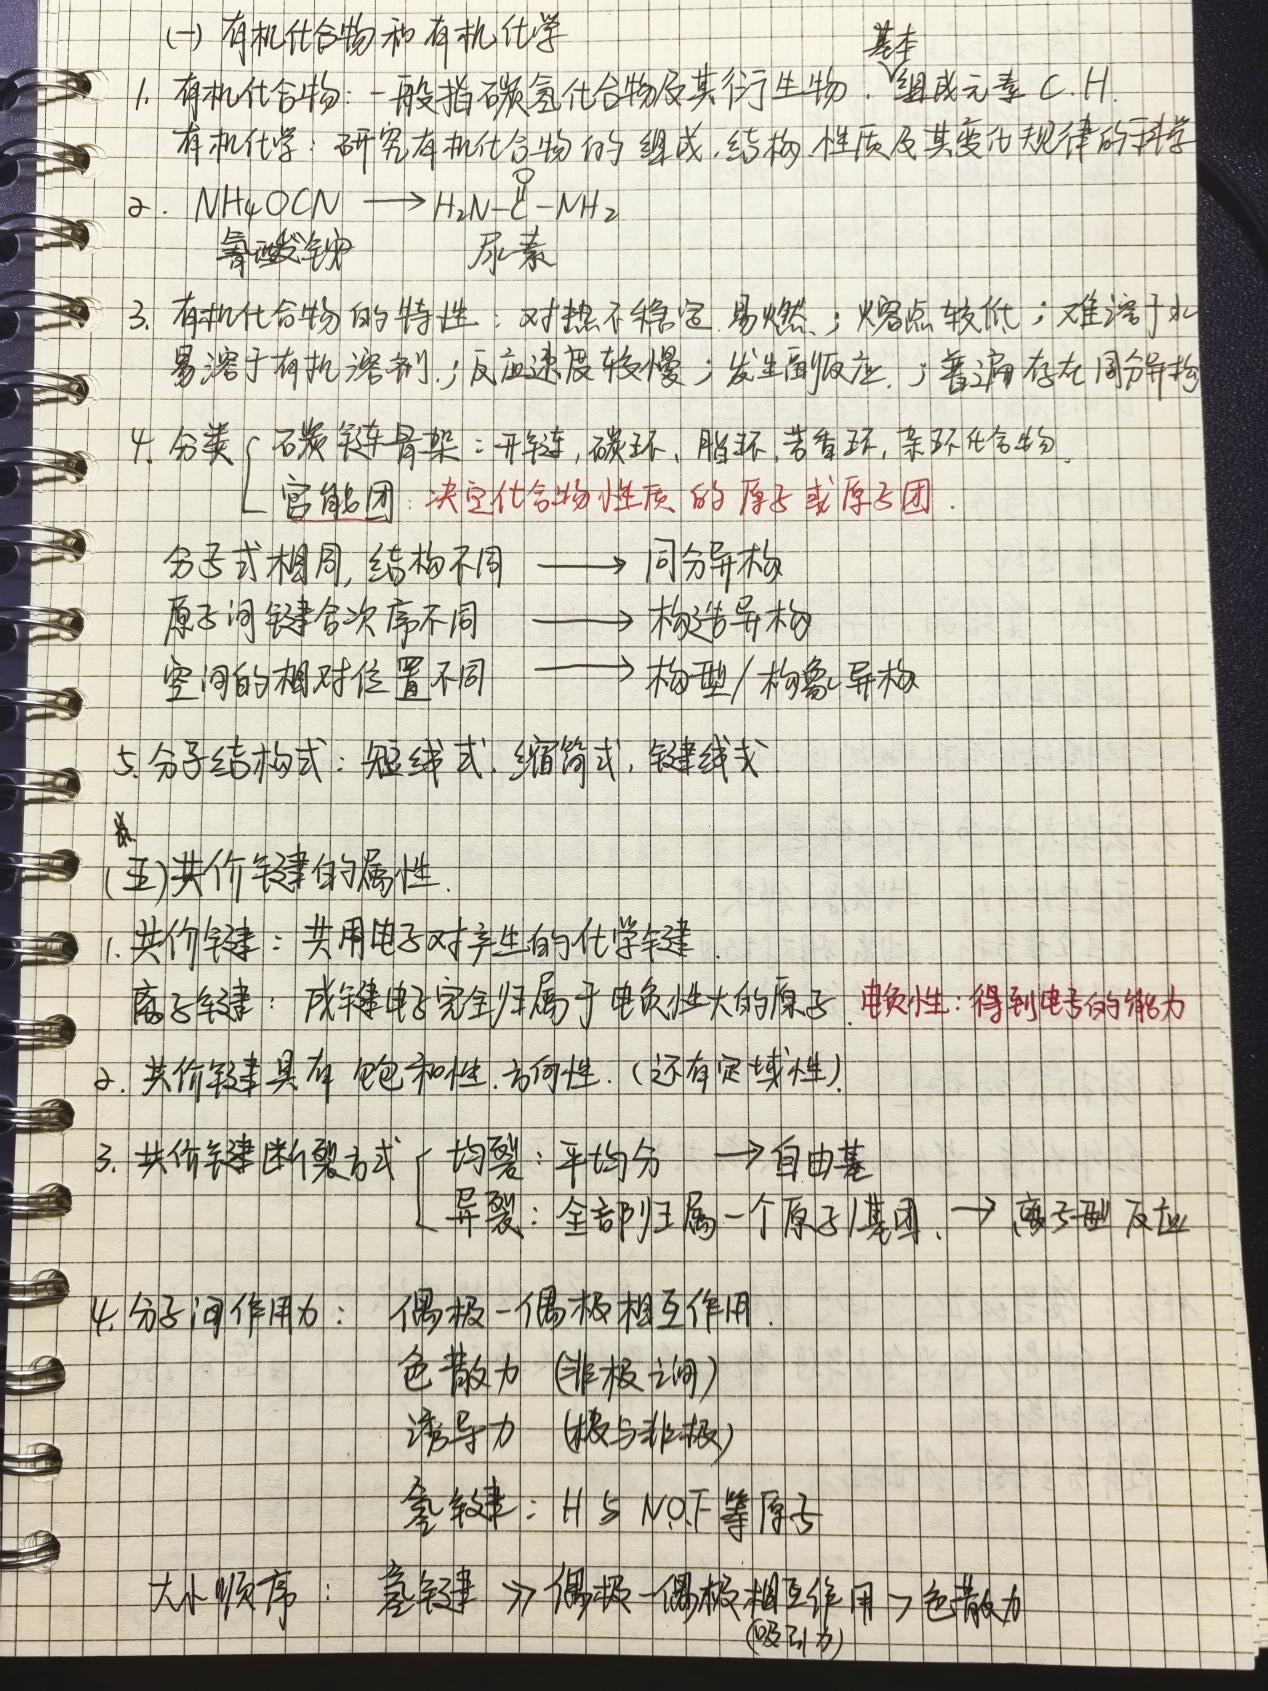 (一) 有机化合物和有机化学
1. 有机化合物：一般指碳氢化合物及其衍生物. 基本组成元素 C.H.
有机化学：研究有机化合物的组成.结构.性质及其变化规律的科学
O
2. NH4OCN → H2N-C-NH2
氰酸铵 尿素
3. 有机化合物的特性：对热不稳定 易燃；熔点较低；难溶于水
易溶于有机溶剂.；反应速度较慢；发生副反应.；普遍存在同分异构
4. 分类 碳链骨架：开链,碳环、脂环,芳香环,杂环化合物.
官能团：决定化合物性质的原子或原子团.
分子式相同,结构不同 → 同分异构
原子间键合次序不同 → 构造异构
空间的相对位置不同 → 构型/构象异构
5.分子结构式：短线式.缩简式.键线式
(五)共价键的属性.
1.共价键：共用电子对产生的化学键.
离子键：成键电子完全归属于电负性大的原子. 电负性：得到电子的能力
2. 共价键具有饱和性.方向性.(还有定域性).
3. 共价键断裂方式 均裂：平均分 → 自由基
异裂：全部归属一个原子/基团. → 离子型反应
4.分子间作用力： 偶极-偶极相互作用.
色散力 (非极之间)
诱导力 (极与非极)
氢键：H与N.O.F等原子
大小顺序： 氢键 >> 偶极-偶极相互作用 > 色散力
(吸引力)